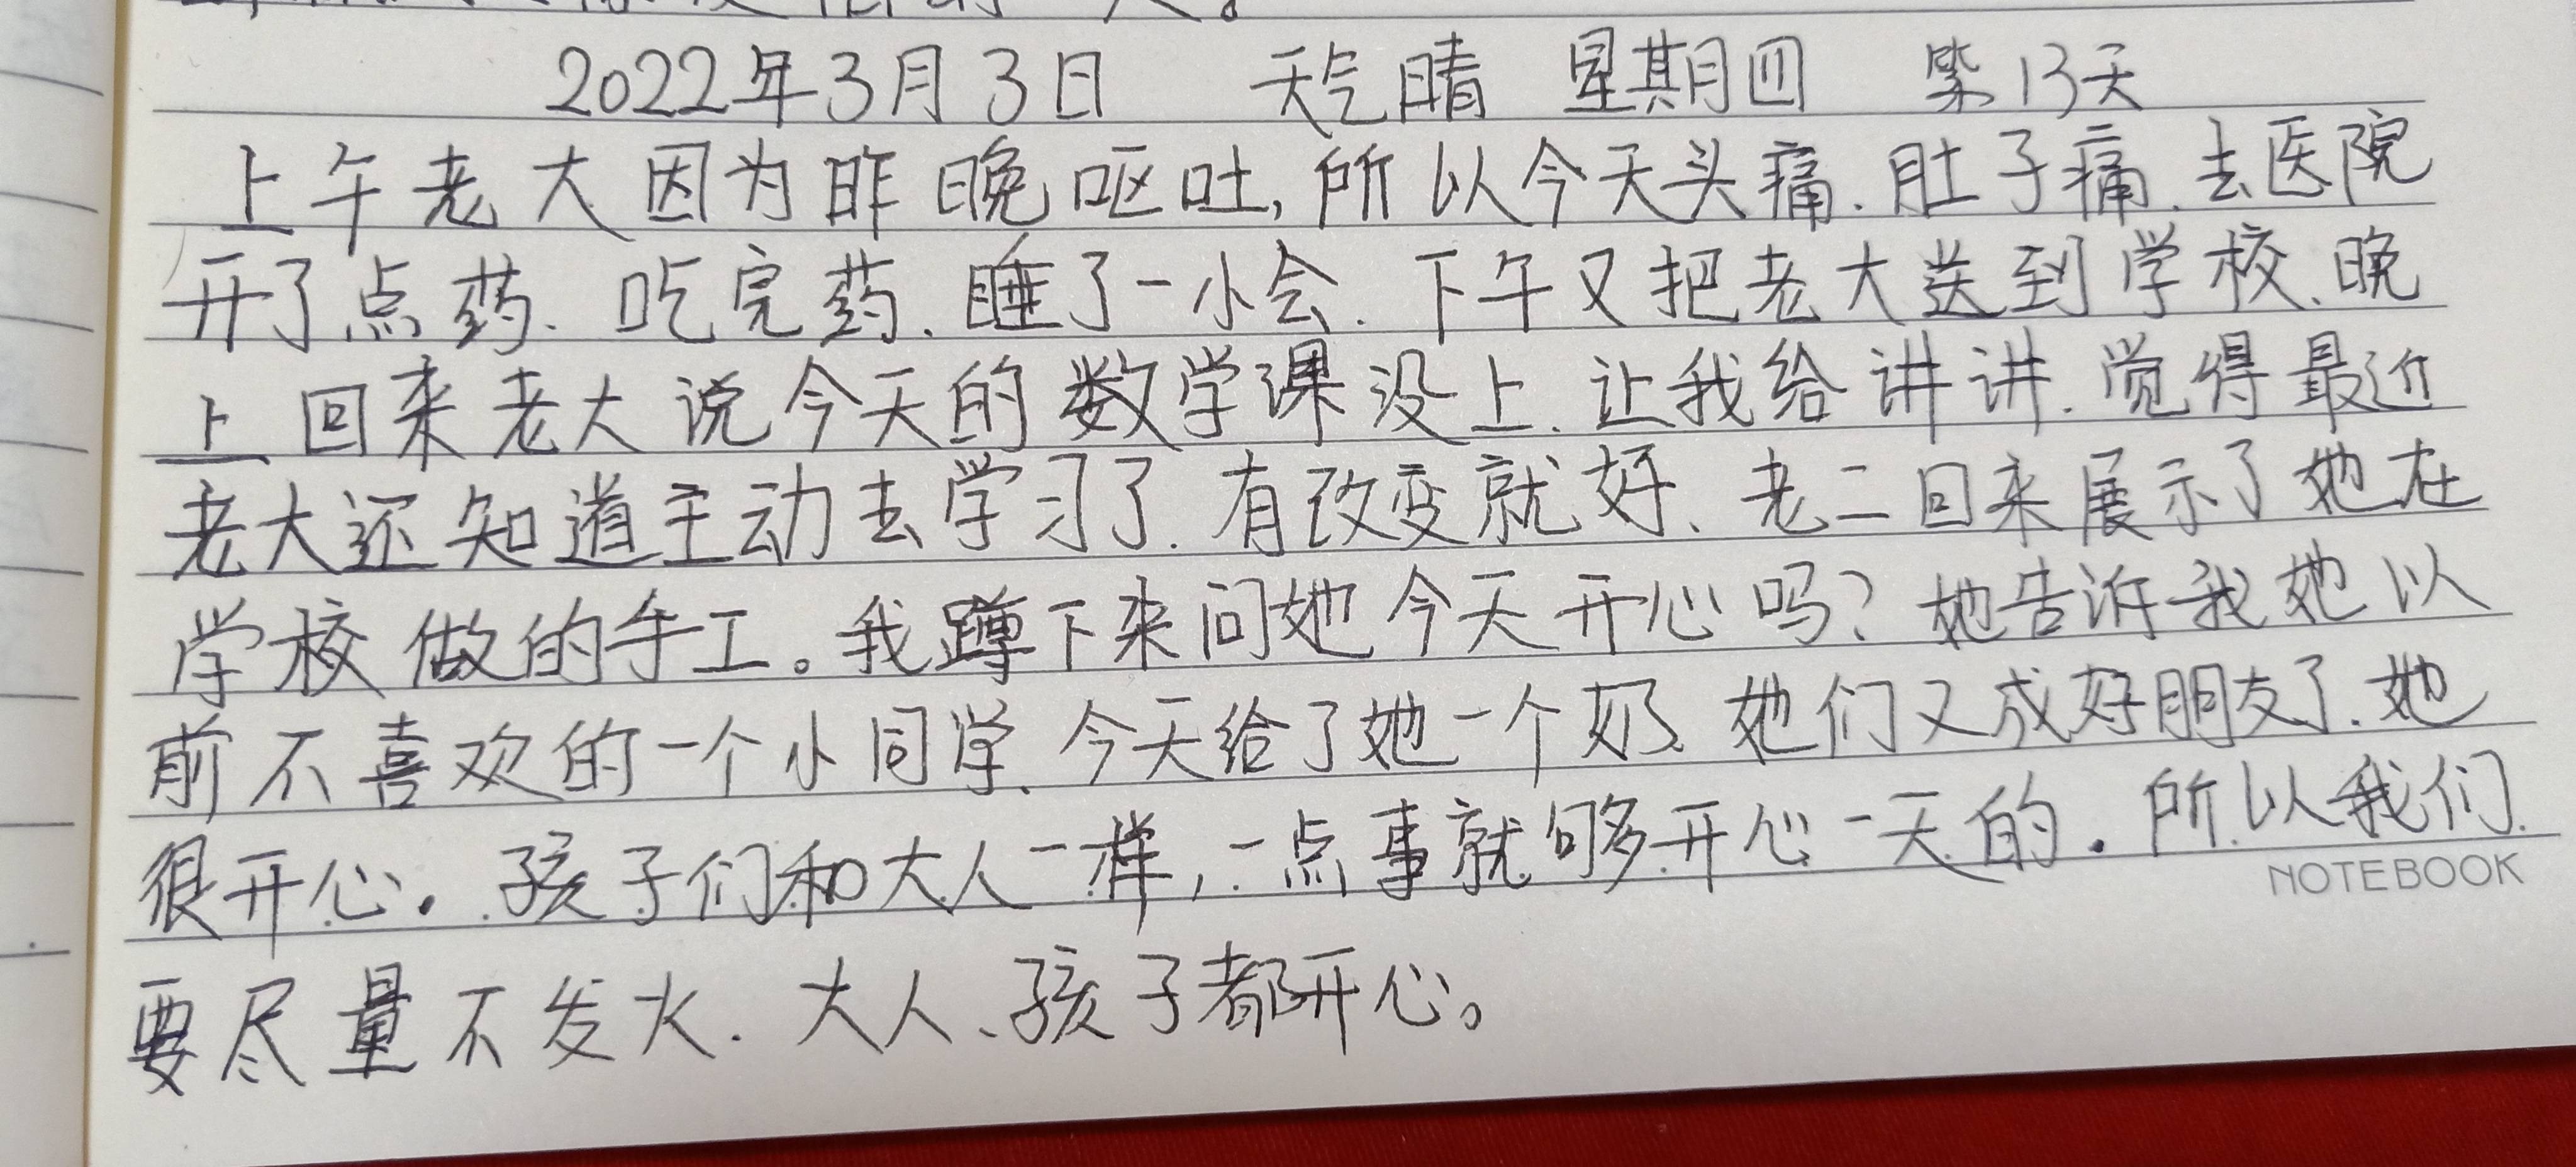 2022年3月3日 天气晴 星期四 第13天
上午老大因为昨晚呕吐,所以今天头痛.肚子痛.去医院
开了点药.吃完药.睡了一小会.下午又把老大送到学校.晚
上回来老大说今天的数学课没上.让我给讲讲.觉得最近
老大还知道主动去学习了.有改变就好.老二回来展示了她在
学校做的手工。我蹲下来问她今天开心吗？她告诉我她以
前不喜欢的一个小同学.今天给了她一个奶.她们又成好朋友了.她
很开心.孩子们和大人一样,一点事就够开心一天的.所以我们
NOTEBOOK
要尽量不发火.大人、孩子都开心。